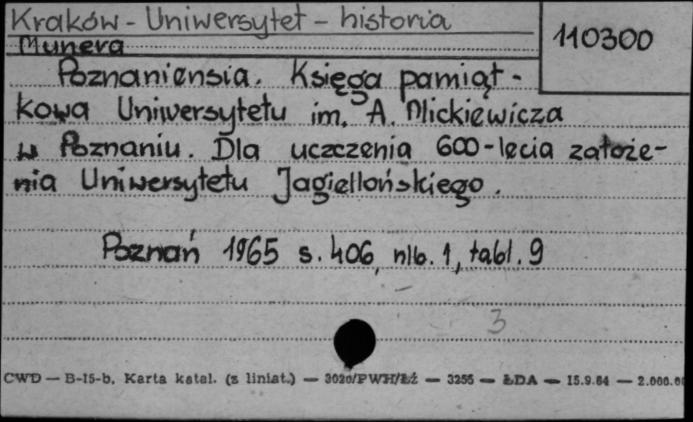 Kraków - Uniwersytet - historia
110300
Munera
Poznaniensia. Księga pamiąt-
kowa Uniwersytetu im. A. Mickiewicza
w Poznaniu. Dla uczczenia 600-lecia założe-
nia Uniwersytetu Jagiellońskiego.
Poznań 1965 s. 406, nlb. 1, tabl. 9
3
CWD — B-15-b, Karta katal. (z liniat.) — 3020/PWH/Łż — 3255 — ŁDA — 15.9.64 — 2.000.